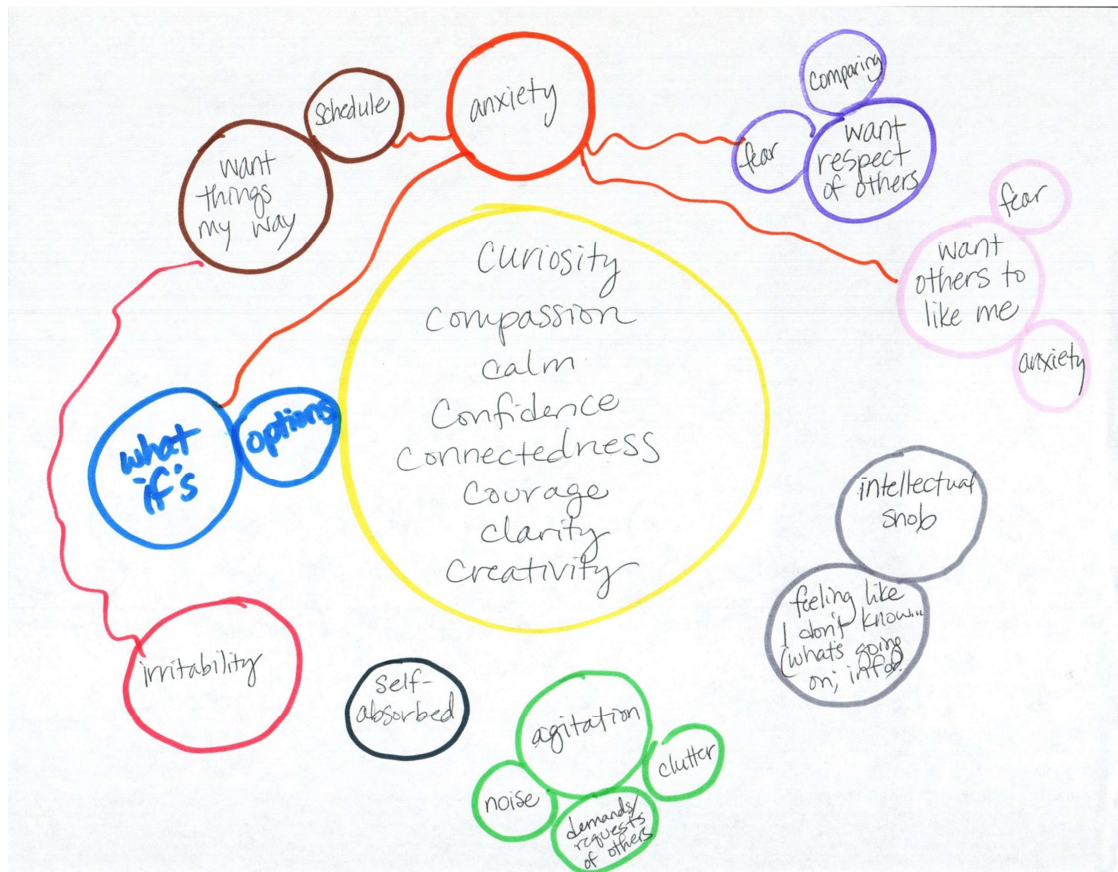 schedule
want
things
my way
anxiety
comparing
fear
want
respect
of others
fear
want
others to
like me
anxiety
Curiosity
Compassion
Calm
Confidence
Connectedness
Courage
Clarity
Creativity
what
if's
options
intellectual
snob
feeling like
I don't know...
(what's going
on; info)
irritability
self-
absorbed
agitation
noise
clutter
demands/
requests
of others